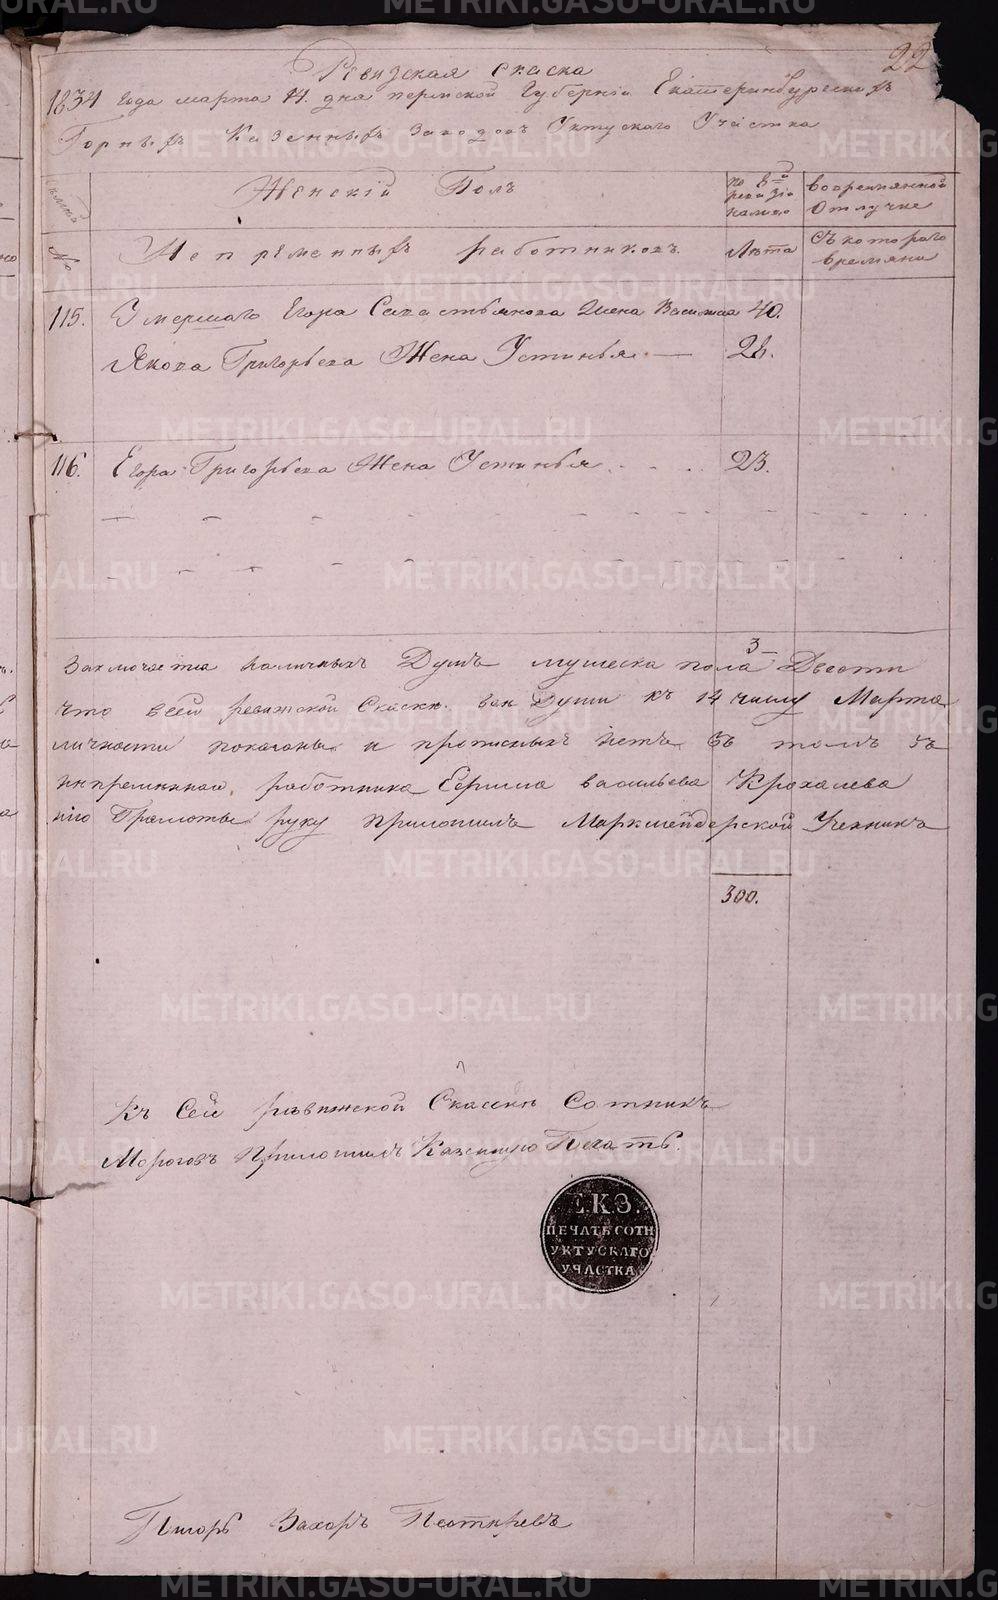 22
Ревизская скаска
1834 года марта 14. дня пермской Губернiи Екатеринбурскихъ
Горныхъ Казенныхъ Заводовъ Уктускаго Участка
Семьи
Женскiй Полъ
по 8й ревизiи
вовременной отлучке
№
Непременныхъ работниковъ.
Лѣта
Съ котораго времяни
115.
Умершаго Егора Савастьянова Жена 40.
Якова Григорьева Жена Устинья 28.
116. Егора Григорьева Жена Устинья 23.
наличныхъ Душъ мужеска пола 3 Двести
что всей ревижской Скаски Души къ 14 числу Марта
личности показаны и прописныхъ нетъ въ томъ
работника васильева Крохалева
Грамоты руку приложилъ Маркшейдерской Ученикъ
300.
Къ Сей ревижской Скаскѣ Сотникъ
Морозовъ Приложилъ Казенную Печать.
Е.К.З.
ПЕЧАТЬ СОТН
УКТУСКАГО
УЧАСТКА
Захоръ
METRIKI.GASO-URAL.RU